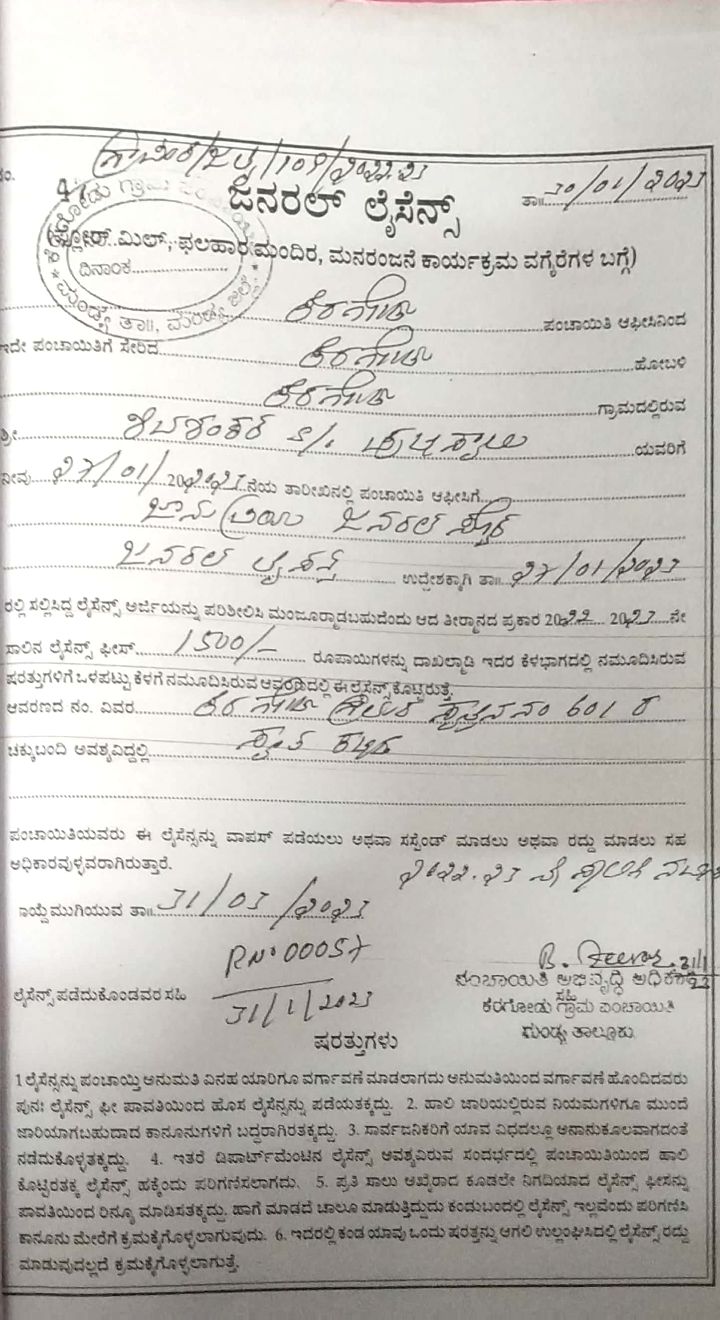 ನಂ. ಗ್ರಾಪಂಕ/ಜಲೈ/109/2022.23
ತಾ॥ 30/01/2023
ಜನರಲ್ ಲೈಸೆನ್ಸ್
(ಫ್ಲೋರ್ ಮಿಲ್, ಫಲಹಾರ ಮಂದಿರ, ಮನರಂಜನೆ ಕಾರ್ಯಕ್ರಮ ವಗೈರೆಗಳ ಬಗ್ಗೆ)
ದಿನಾಂಕ
ಮಂಡ್ಯ ತಾ॥, ಮಂಡ್ಯ ಜಿಲ್ಲೆ
ಕೆರಗೋಡು ಪಂಚಾಯಿತಿ ಆಫೀಸಿನಿಂದ
ಇದೇ ಪಂಚಾಯಿತಿಗೆ ಸೇರಿದ ಕೆರಗೋಡು ಹೋಬಳಿ
ಕೆರಗೋಡು ಗ್ರಾಮದಲ್ಲಿರುವ
ಶ್ರೀ ಶಿವಶಂಕರ s/o ಯವರಿಗೆ
ನೀವು 27/01/2023ನೆಯ ತಾರೀಖಿನಲ್ಲಿ ಪಂಚಾಯಿತಿ ಆಫೀಸಿಗೆ
ಜನರಲ್ ಸ್ಟೋರ್
ಜನರಲ್ ಲೈಸೆನ್ಸ್ ಉದ್ದೇಶಕ್ಕಾಗಿ ತಾ॥ 27/01/2023
ರಲ್ಲಿ ಸಲ್ಲಿಸಿದ್ದ ಲೈಸೆನ್ಸ್ ಅರ್ಜಿಯನ್ನು ಪರಿಶೀಲಿಸಿ ಮಂಜೂರ್ಮಾಡಬಹುದೆಂದು ಆದ ತೀರ್ಮಾನದ ಪ್ರಕಾರ 2022 2023 ನೇ
ಸಾಲಿನ ಲೈಸೆನ್ಸ್ ಫೀಸ್ 1500/- ರೂಪಾಯಿಗಳನ್ನು ದಾಖಲ್ಮಾಡಿ ಇದರ ಕೆಳಭಾಗದಲ್ಲಿ ನಮೂದಿಸಿರುವ
ಷರತ್ತುಗಳಿಗೆ ಒಳಪಟ್ಟು ಕೆಳಗೆ ನಮೂದಿಸಿರುವ ಆವರಣದಲ್ಲಿ ಈ ಲೈಸೆನ್ಸ್ ಕೊಟ್ಟಿರುತ್ತೆ.
ಆವರಣದ ನಂ. ವಿವರ ಕೆರಗೋಡು ನಂ 601 ರ
ಚಕ್ಕುಬಂದಿ ಅವಶ್ಯವಿದ್ದಲ್ಲಿ ಸ್ವಂತ ಕಟ್ಟಡ
ಪಂಚಾಯಿತಿಯವರು ಈ ಲೈಸೆನ್ಸನ್ನು ವಾಪಸ್ ಪಡೆಯಲು ಅಥವಾ ಸಸ್ಪೆಂಡ್ ಮಾಡಲು ಅಥವಾ ರದ್ದು ಮಾಡಲು ಸಹ
ಅಧಿಕಾರವುಳ್ಳವರಾಗಿರುತ್ತಾರೆ.
2022-23 ನೇ ಸಾಲಿಗೆ
ವಾಯ್ದೆ ಮುಗಿಯುವ ತಾ॥ 31/03/2023
RNo 00057
31/1/2023
ಲೈಸೆನ್ಸ್ ಪಡೆದುಕೊಂಡವರ ಸಹಿ
31/1
ಪಂಚಾಯಿತಿ ಅಭಿವೃದ್ಧಿ ಅಧಿಕಾರಿ
ಸಹಿ
ಕೆರಗೋಡು ಗ್ರಾಮ ಪಂಚಾಯಿತಿ
ಮಂಡ್ಯ ತಾಲ್ಲೂಕು
ಷರತ್ತುಗಳು
1 ಲೈಸೆನ್ಸನ್ನು ಪಂಚಾಯ್ತಿ ಅನುಮತಿ ವಿನಹ ಯಾರಿಗೂ ವರ್ಗಾವಣೆ ಮಾಡಲಾಗದು ಅನುಮತಿಯಿಂದ ವರ್ಗಾವಣೆ ಹೊಂದಿದವರು
ಪುನಃ ಲೈಸೆನ್ಸ್ ಫೀ ಪಾವತಿಯಿಂದ ಹೊಸ ಲೈಸೆನ್ಸನ್ನು ಪಡೆಯತಕ್ಕದ್ದು. 2. ಹಾಲಿ ಜಾರಿಯಲ್ಲಿರುವ ನಿಯಮಗಳಿಗೂ ಮುಂದೆ
ಜಾರಿಯಾಗಬಹುದಾದ ಕಾನೂನುಗಳಿಗೆ ಬದ್ಧರಾಗಿರತಕ್ಕದ್ದು. 3. ಸಾರ್ವಜನಿಕರಿಗೆ ಯಾವ ವಿಧದಲ್ಲೂ ಅನಾನುಕೂಲವಾಗದಂತೆ
ನಡೆದುಕೊಳ್ಳತಕ್ಕದ್ದು. 4. ಇತರೆ ಡಿಪಾರ್ಟ್‌ಮೆಂಟಿನ ಲೈಸೆನ್ಸ್ ಅವಶ್ಯವಿರುವ ಸಂದರ್ಭದಲ್ಲಿ ಪಂಚಾಯಿತಿಯಿಂದ ಹಾಲಿ
ಕೊಟ್ಟಿರತಕ್ಕ ಲೈಸೆನ್ಸ್ ಹಕ್ಕೆಂದು ಪರಿಗಣಿಸಲಾಗದು. 5. ಪ್ರತಿ ಸಾಲು ಆಖೈರಾದ ಕೂಡಲೇ ನಿಗದಿಯಾದ ಲೈಸೆನ್ಸ್ ಫೀಸನ್ನು
ಪಾವತಿಯಿಂದ ರಿನ್ಯೂ ಮಾಡಿಸತಕ್ಕದ್ದು. ಹಾಗೆ ಮಾಡದೆ ಚಾಲೂ ಮಾಡುತ್ತಿದ್ದುದು ಕಂಡುಬಂದಲ್ಲಿ ಲೈಸೆನ್ಸ್ ಇಲ್ಲವೆಂದು ಪರಿಗಣಿಸಿ
ಕಾನೂನು ಮೇರೆಗೆ ಕ್ರಮಕೈಗೊಳ್ಳಲಾಗುವುದು. 6. ಇದರಲ್ಲಿ ಕಂಡ ಯಾವು ಒಂದು ಷರತ್ತನ್ನು ಆಗಲಿ ಉಲ್ಲಂಘಿಸಿದಲ್ಲಿ ಲೈಸೆನ್ಸ್ ರದ್ದು
ಮಾಡುವುದಲ್ಲದೆ ಕ್ರಮಕೈಗೊಳ್ಳಲಾಗುತ್ತೆ.